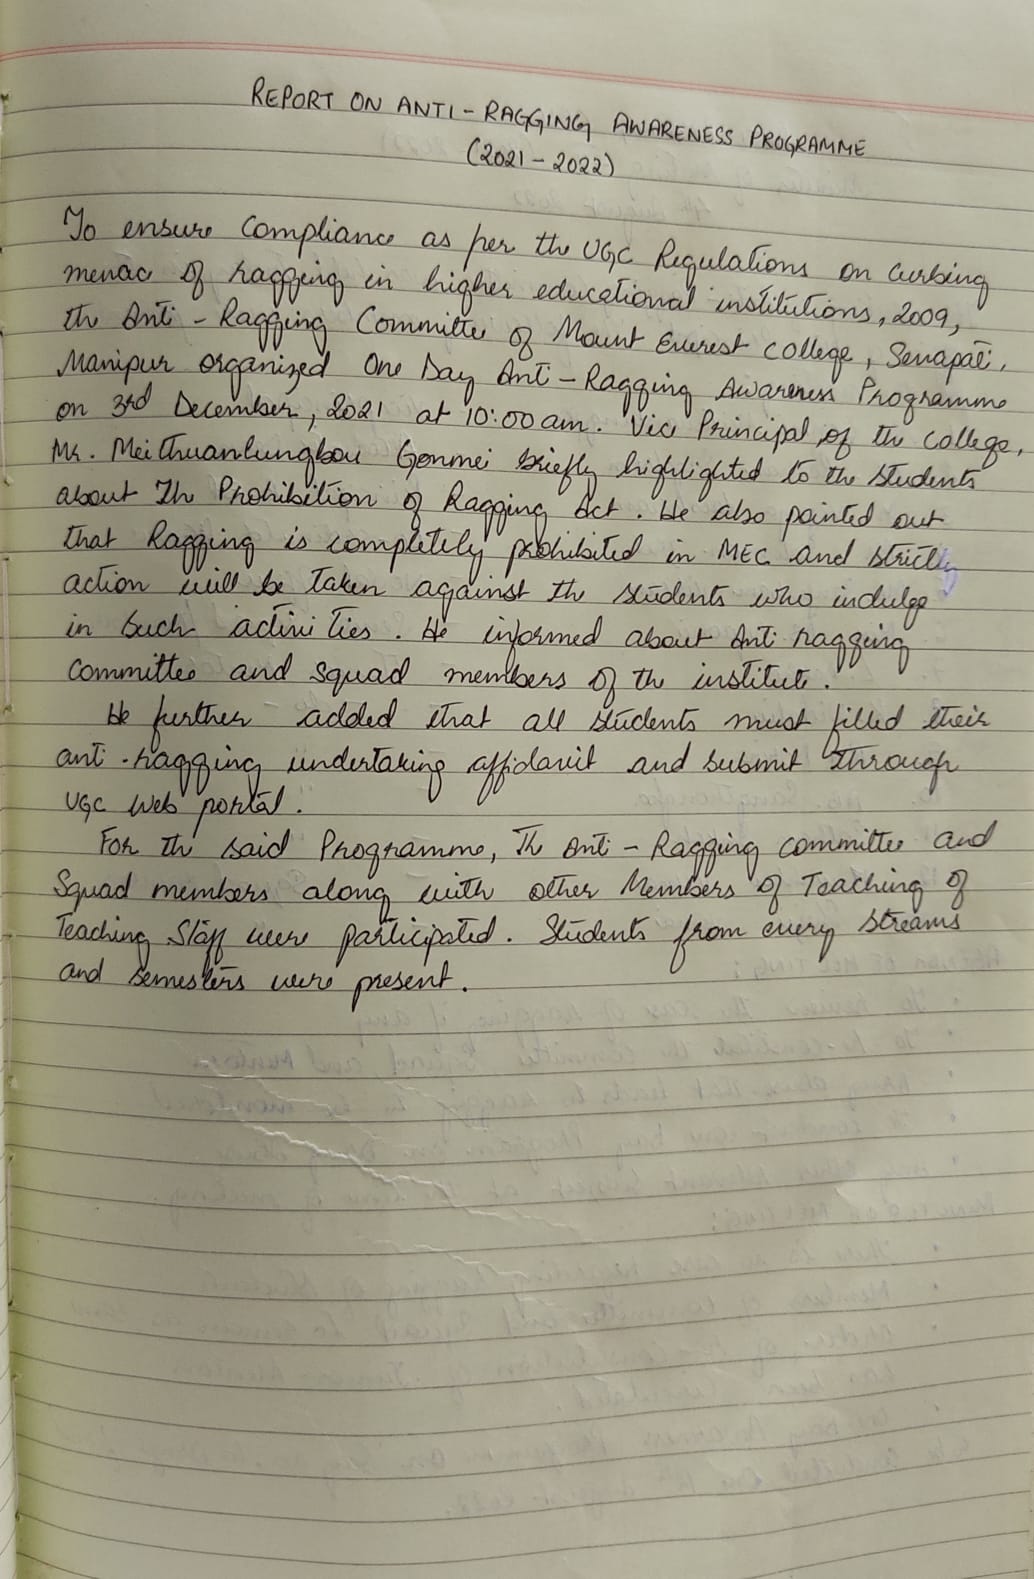 REPORT ON ANTI-RAGGING AWARENESS PROGRAMME
(2021-2022)
To ensure compliance as per the UGC Regulations on Curbing
menace of ragging in higher educational institutions, 2009,
the Anti-Ragging Committee of Mount Everest College, Senapati,
Manipur organized One Day Anti-Ragging Awareness Programme
on 3rd December, 2021 at 10:00am. Vice Principal of the college,
Mr. Meithuanlungbou Gonmei briefly highlighted to the students
about The Prohibition of Ragging Act. He also pointed out
that Ragging is completely prohibited in MEC and strictly
action will be taken against the students who indulge
in such activities. He informed about Anti ragging
committee and squad members of the institute.
He further added that all students must filled their
anti-ragging undertaking affidavit and submit through
UGC web portal.
For the said Programme, The Anti-Ragging committee and
Squad members along with other Members of Teaching of
Teaching Staff were participated. Students from every streams
and semesters were present.